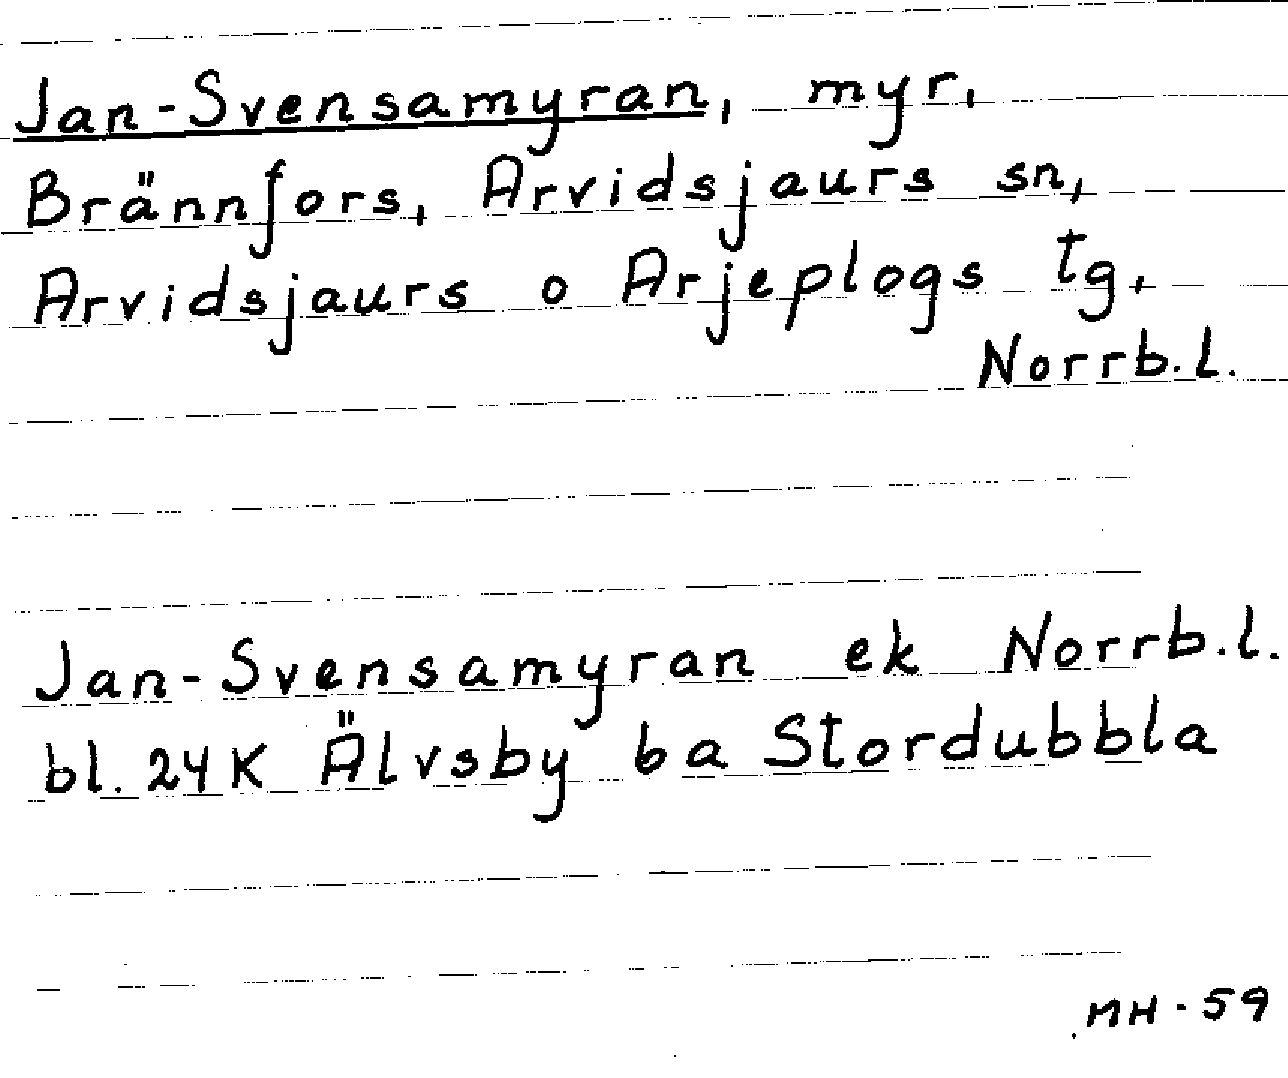 Jan-Svensamyran, myr,
Brännfors, Arvidsjaurs sn,
Arvidsjaurs o Arjeplogs tg,
Norrb.l.
Jan-Svensamyran ek Norrb.l.
bl. 24K Älvsby ba Stordubbla
MH-59